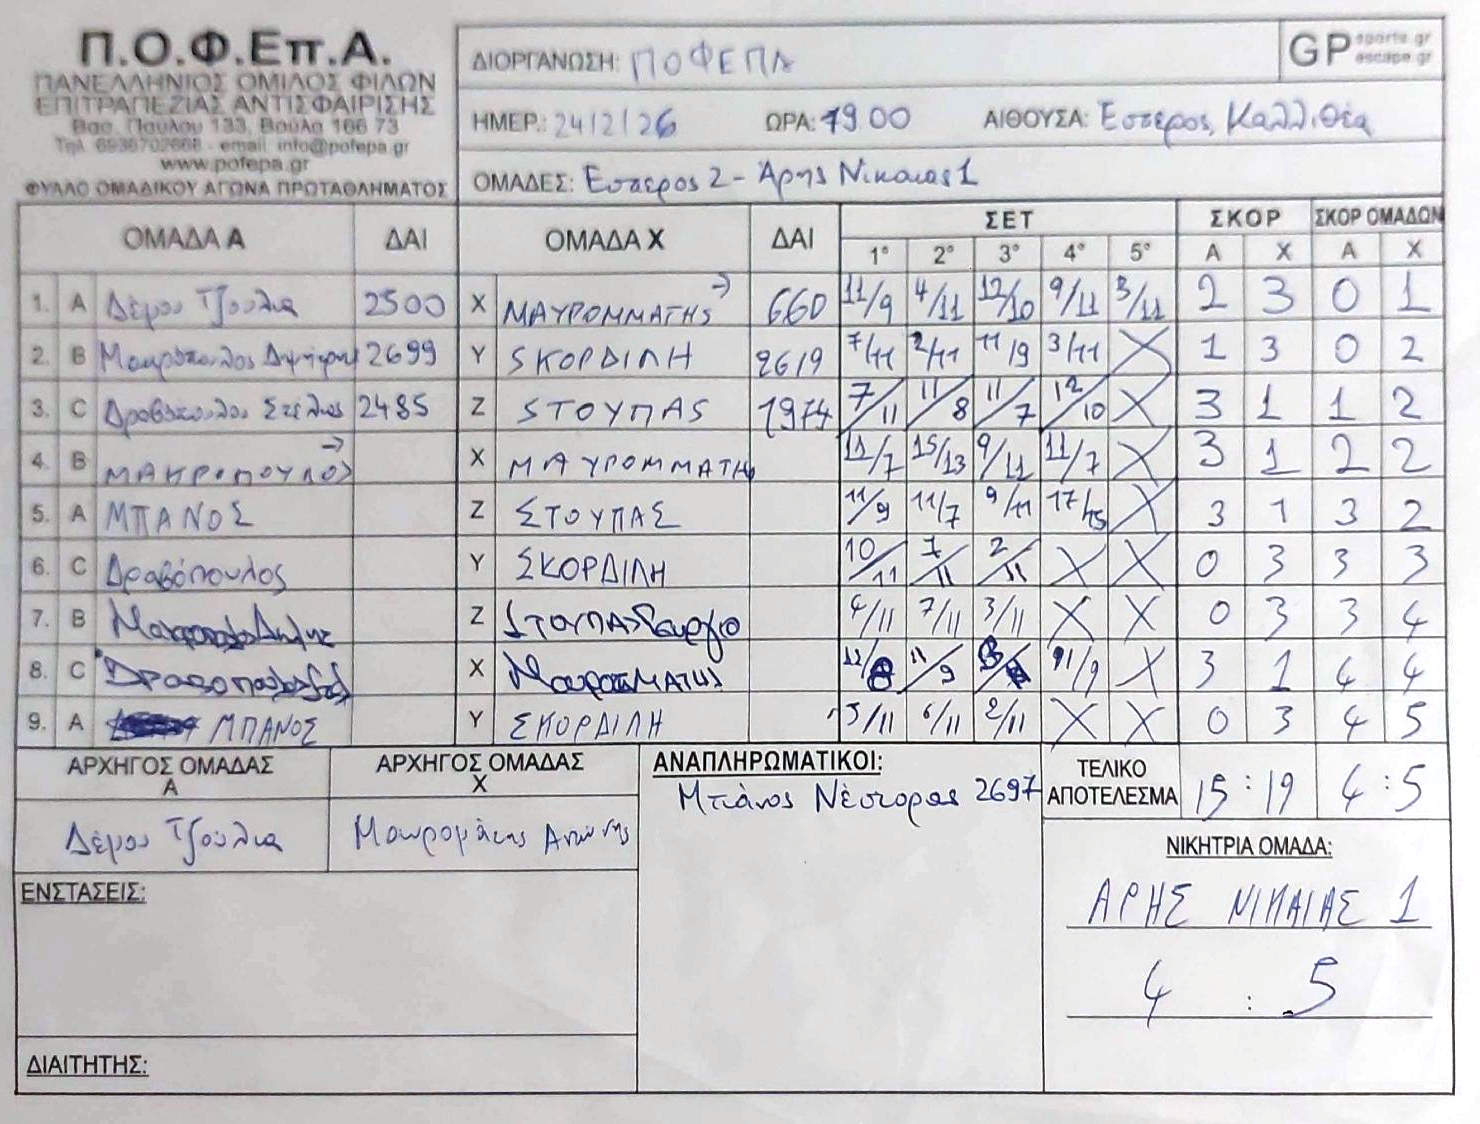 Π.Ο.Φ.Επ.Α.
ΠΑΝΕΛΛΗΝΙΟΣ ΟΜΙΛΟΣ ΦΙΛΩΝ
ΕΠΙΤΡΑΠΕΖΙΑΣ ΑΝΤΙΣΦΑΙΡΙΣΗΣ
Βασ. Παυλου 133, Βούλα 166 73
Τηλ. 6936702668 - email. info@pofepa.gr
www.pofepa.gr
ΦΥΛΛΟ ΟΜΑΔΙΚΟΥ ΑΓΩΝΑ ΠΡΩΤΑΘΛΗΜΑΤΟΣ
ΔΙΟΡΓΑΝΩΣΗ: ΠΟΦΕΠΑ
GP sports.gr escape.gr
ΗΜΕΡ.: 24/2/26 ΩΡΑ: 19.00 ΑΙΘΟΥΣΑ: Έσπερος, Καλλιθέα
ΟΜΑΔΕΣ: Εσπερος 2 - Άρης Νικαιας 1
ΟΜΑΔΑ Α ΔΑΙ ΟΜΑΔΑ Χ ΔΑΙ ΣΕΤ ΣΚΟΡ ΣΚΟΡ ΟΜΑΔΩΝ
1° 2° 3° 4° 5° Α Χ Α Χ
1. Α Δέμου Τζούλια 2500 Χ ΜΑΥΡΟΜΜΑΤΗΣ → 660 11/9 4/11 12/10 9/11 3/11 2 3 0 1
2. Β Μακρόπουλος Δημήτρης 2699 Υ SΚΟΡΔΙΛΗ 2619 7/11 2/11 11/9 3/11 X 1 3 0 2
3. C Δραβόπουλος Στέλιος 2485 Ζ SΤΟΥΠΑS 1974 7/11 11/8 11/7 12/10 X 3 1 1 2
4. Β ΜΑΚΡΟΠΟΥΛΟΣ → Χ ΜΑΥΡΟΜΜΑΤΗΣ 11/7 15/13 9/11 11/7 X 3 1 2 2
5. Α ΜΠΑΝΟΣ Ζ ΣΤΟΥΠΑΣ 11/9 11/7 9/11 17/15 X 3 1 3 2
6. C Δραβόπουλος Υ ΣΚΟΡΔΙΛΗ 10/11 7/11 2/11 X X 0 3 3 3
7. Β Μακρόπουλος Δημήτρης Ζ SΤΟΥΠΑΣ Γεώργιο 4/11 7/11 3/11 X X 0 3 3 4
8. C Δραβοπουλος Χ ΜαυρομΜΑΤΗΣ 11/9 11/9 X 3 1 4 4
9. Α ΜΠΑΝΟΣ Υ ΣΚΟΡΔΙΛΗ 5/11 6/11 2/11 X X 0 3 4 5
ΑΡΧΗΓΟΣ ΟΜΑΔΑΣ Α
ΑΡΧΗΓΟΣ ΟΜΑΔΑΣ Χ
ΑΝΑΠΛΗΡΩΜΑΤΙΚΟΙ:
Μπάνος Νέστορας 2697
ΤΕΛΙΚΟ ΑΠΟΤΕΛΕΣΜΑ 15 : 19 4 : 5
Δέμου Τζούλια
Μαυρομάτης Αντώνης
ΝΙΚΗΤΡΙΑ ΟΜΑΔΑ:
ΑΡΗΣ ΝΙΚΑΙΑΣ 1
4 : 5
ΕΝΣΤΑΣΕΙΣ:
ΔΙΑΙΤΗΤΗΣ: